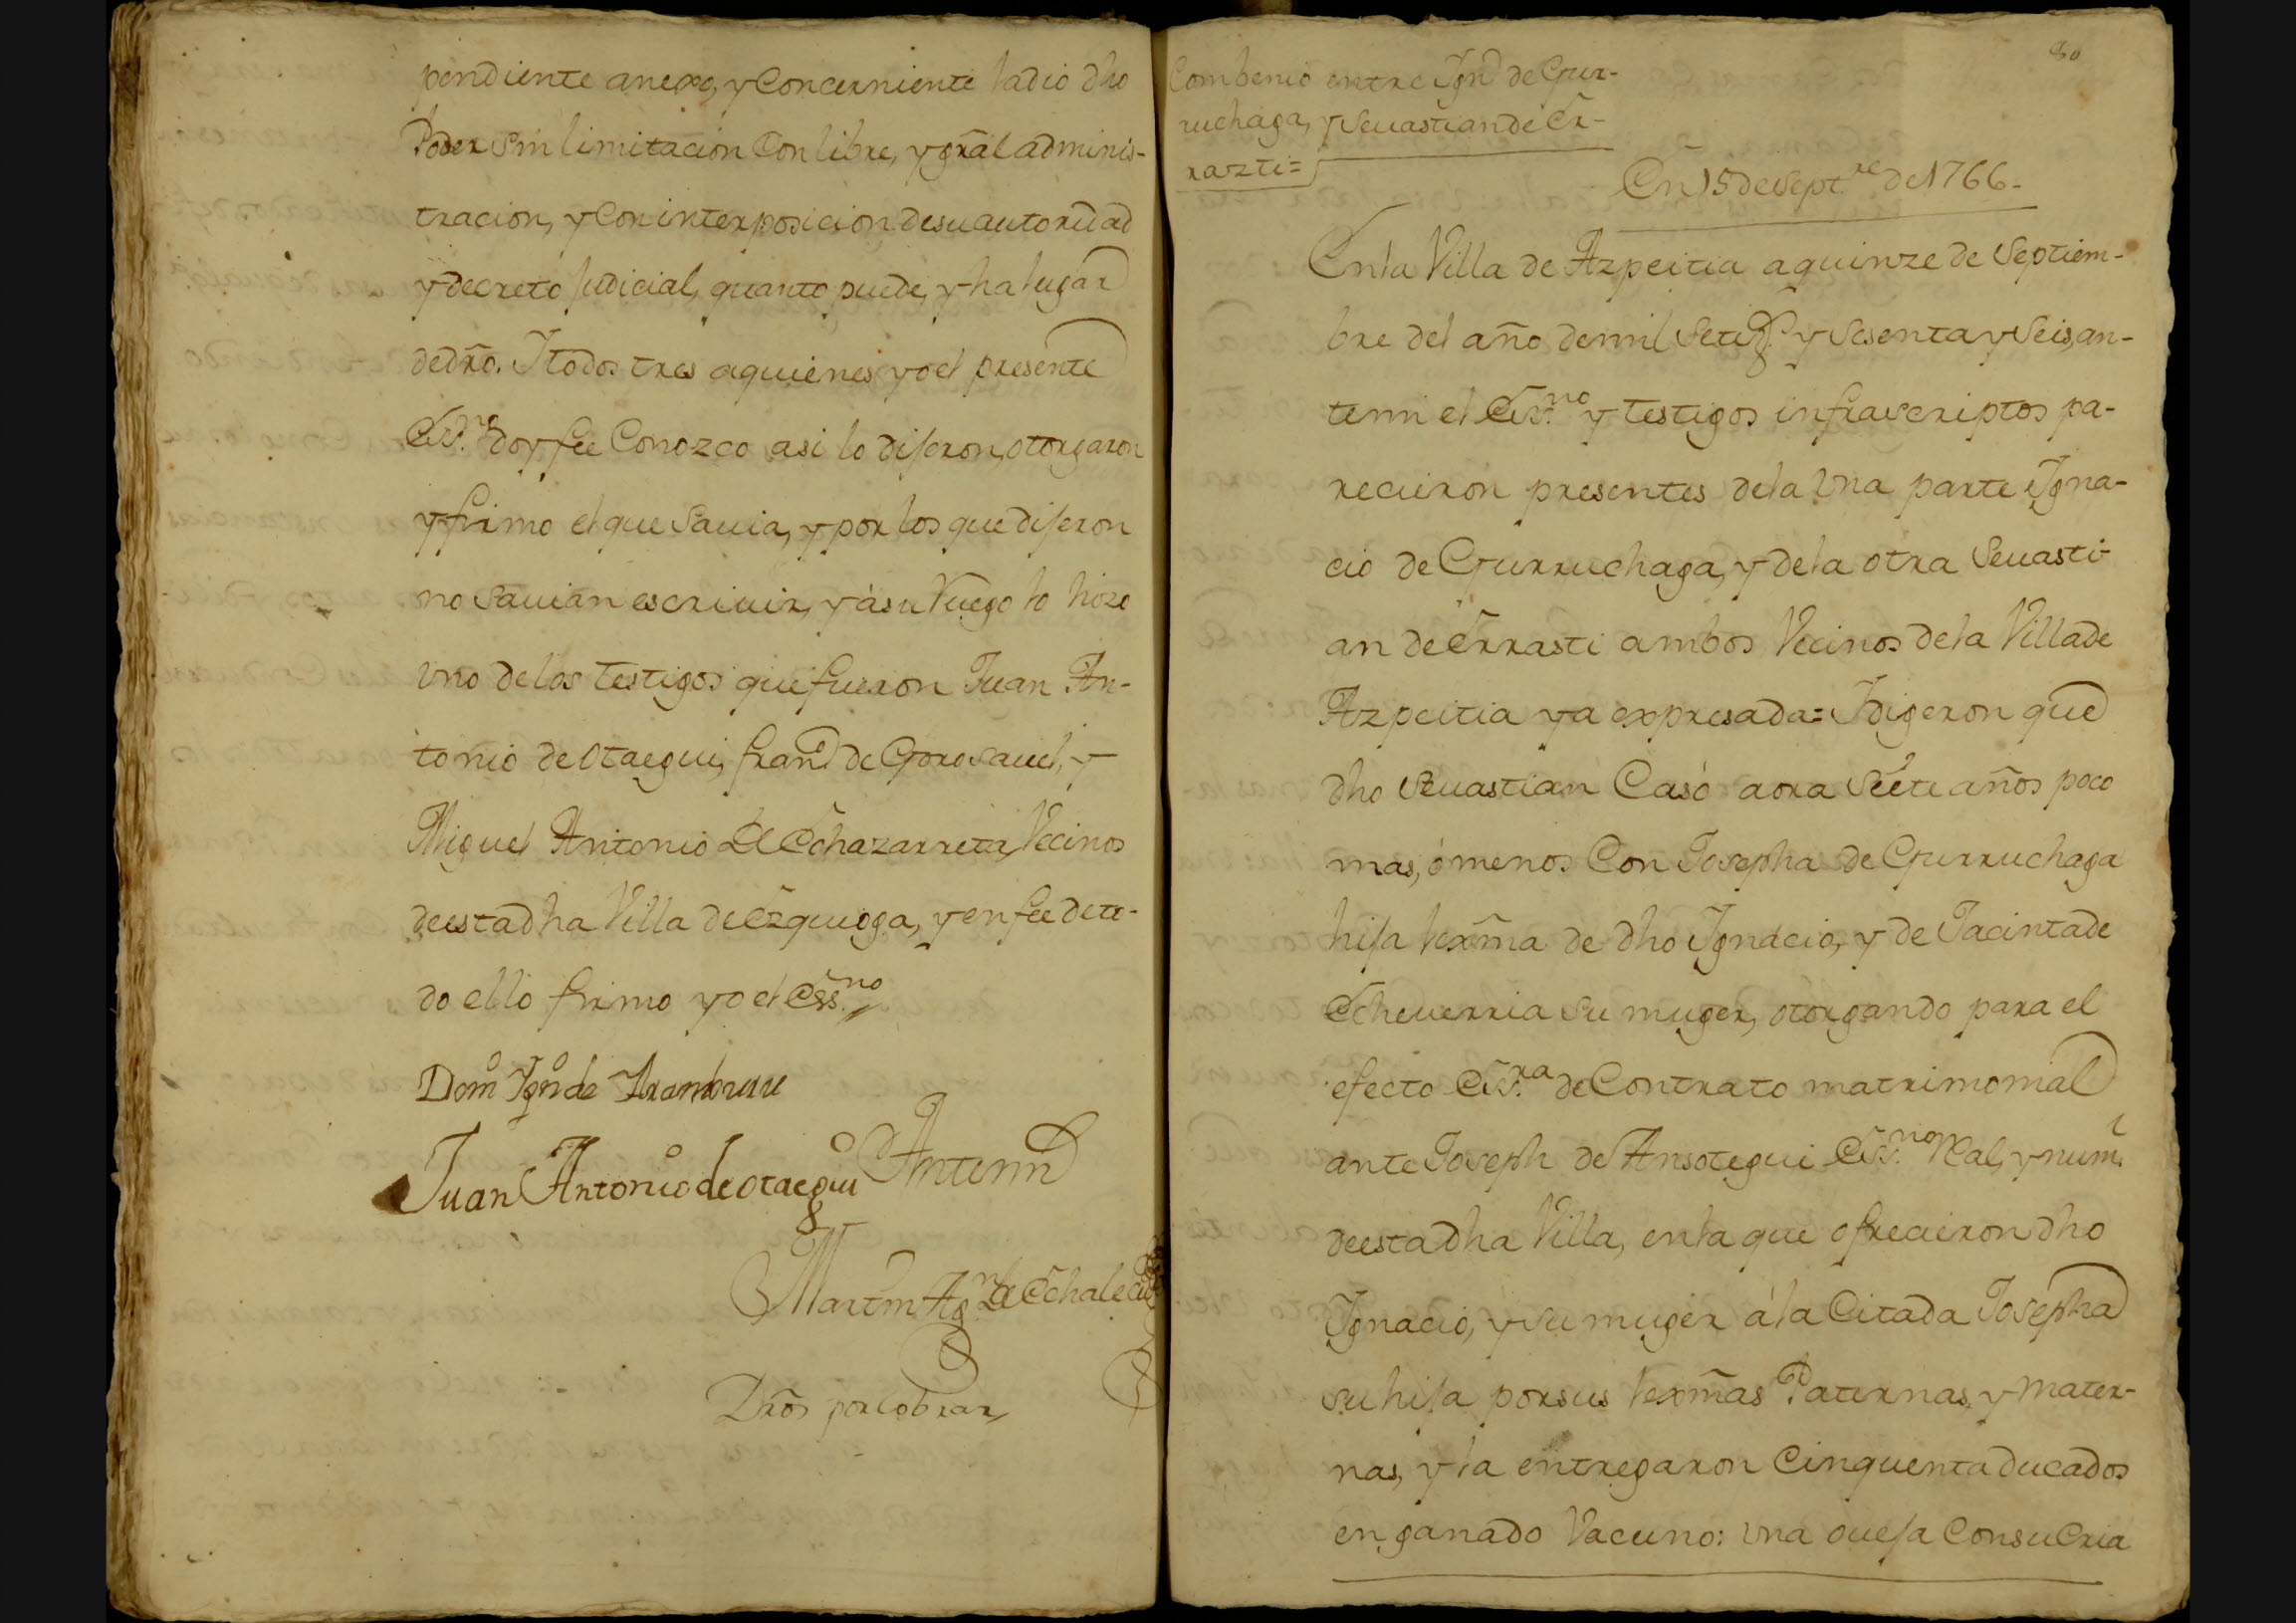 pendiente anexo, y Concerniente la dio dho
Poder sin limitacion Con libre, y gral adminis-
tracion, y Con interposicion de su autoridad
y decreto Judicial, quanto puede, y ha lugar
de dro. I todos tres aquienes yo el presente
Ess.no doy fee Conozco asi lo dijeron, otorgaron
y firmo el que Sauia, y por los que dijeron
no Sauian escriuir, y á su Ruego lo hizo
uno de los Testigos que fueron Juan An-
tonio de Otaegui, Fran.co de Gorosauel, y
Miguel Antonio de Echazarreta, Vecinos
de esta dha Villa de Ezquioga, y en fee de to-
do ello firmo yo el Ess.no
Dom.o Ign.o de Aramburu
Juan Antonio de Otaegui Antemi
Martin Ag.n de Echalecu
Dros por cobrar
80
Combenio entre Ign.o de Gur-
ruchaga, y Seuastian de Er-
razti=
En 15 de Sept.re de 1766-
En la Villa de Azpeitia a quinze de Septiem-
bre del año de mil Setez.s y Sesenta y Seis, an-
temi el Ess.no y Testigos infrascriptos pa-
recieron presentes de la una parte Igna-
cio de Gurruchaga, y de la otra Seuasti-
an de Errasti ambos Vecinos de la Villa de
Azpeitia ya expresada= I digeron que
dho Seuastian Casó aora Siete años poco
mas, ó menos Con Josepha de Gurruchaga
hija lexma de dho Ignacio, y de Jacinta de
Echeuerria su muger, otorgando para el
efecto Ess.ra de Contrato matrimonial
ante Joseph de Ansotegui Ess.no Real, y num.l
de esta dha Villa, en la que ofrecieron dho
Ignacio, y su muger á la Citada Josepha
su hija por sus lexmas Paternas, y Mater-
nas, y la entregaron Cinquenta ducados
en ganado Vacuno: una oueja Con su Cria